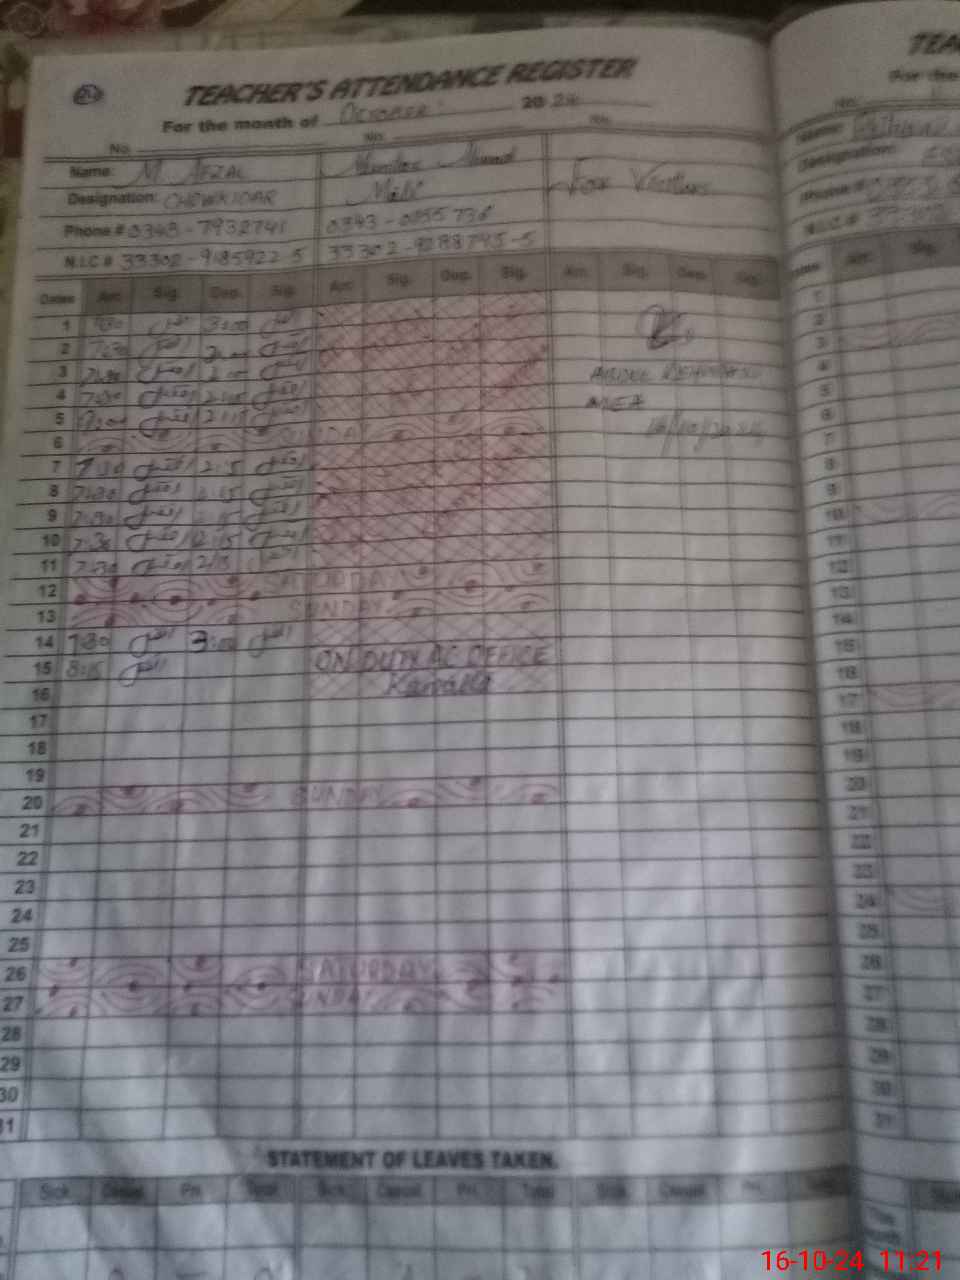 TEACHER'S ATTENDANCE REGISTER
For the month of October 2024
No. No. No.
Name: M AFZAL Ahmad For Visitors
Designation: CHOWKIDAR Mali
Phone # 0343-7932741 0343-0355736
N.I.C # 33302-9185922-5 33302-9288745-5
Dates Arr. Sig. Dep. Sig. Arr. Sig. Dep. Sig. Arr. Sig. Dep. Sig.
1 7:30 افضل 3:00 افضل
2 7:30 افضل افضل
3 7:30 افضل 2:00 افضل
4 7:30 افضل 2:15 افضل
5 افضل 2:15 افضل
6 SUNDAY
7 7:30 افضل 2:15 افضل
8 7:30 افضل 2:15 افضل
9 7:30 افضل 2:15 افضل
10 7:30 افضل 2:15 افضل
11 7:30 افضل 2:15 افضل
12 SATURDAY
13 SUNDAY
14 7:30 افضل 3:00 افضل
15 8:15 افضل ON DUTY AC OFFICE
16 Kamalia
17
18
19
20 SUNDAY
21
22
23
24
25
26 SATURDAY
27 SUNDAY
28
29
30
31
ABDUL REHMAN
MEA
16/10/2024
STATEMENT OF LEAVES TAKEN.
Sick Casual Pri. Total Sick Casual Pri. Total Sick Casual Pri. Total
TEA
For the
No.
Name:
Designation:
Phone #
N.I.C #
Dates Arr. Sig.
1
2
3
4
5
6
7
8
9
10
11
12
13
14
15
16
17
18
19
20
21
22
23
24
25
26
27
28
29
30
31
16-10-24 11:21